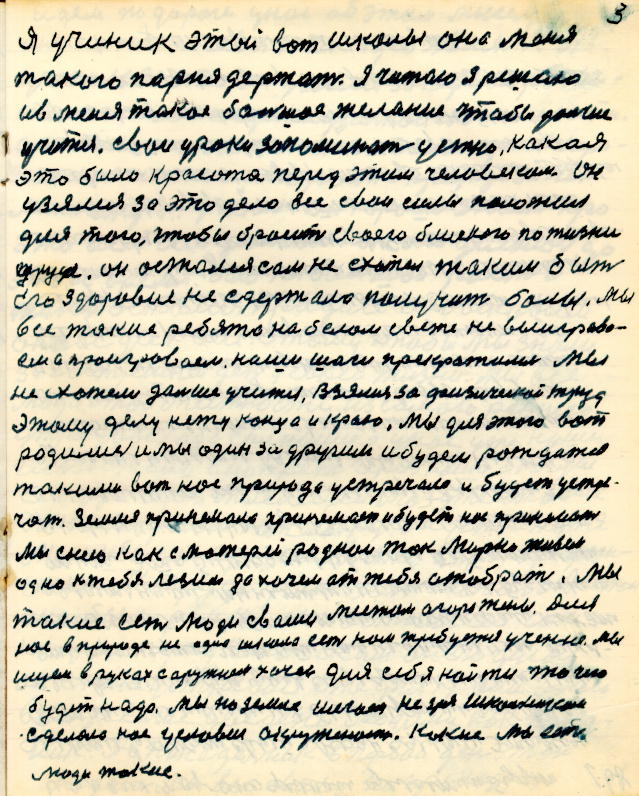 3
Я ученик этой вот школы она меня
такого парня держат. Я читаю я решаю
и в меня такое большое желание чтобы дальше
учится. свои уроки запоминат устно, какая
это была красота перед этим человеком. Он
узялся за это дело все свои силы положил
для того, чтобы бросить своего близкого по жизни
друга. он остался сам не схотел таким быт
его здоровие не сдержало получит балы. Мы
все такие ребята на белом свете не выиграва-
ем а проигроваем. наши шаги прекратили Мы
не схотели дальше учится, взялися за физический труд
этому делу нету конца и краю. Мы для этого вот
родилис и мы один за другим и будем рождатся
такими вот нас природа устречала и будет устре-
чат. Земля принемала принемает и будет нас принемат
Мы с нею как с матерей родной так мирно живем
одно к тебя лезим да хочем от тебя отобрат. Мы
такие ест люди своим местом огорожены. Для
нас в природе не одна школа ест нам требуется учение. Мы
ищем в руках с оружием хочем для себя найти то что
будет надо. Мы на земле шагаем не зря
сделало нас условия окружают. Какие мы ест
люди такие.